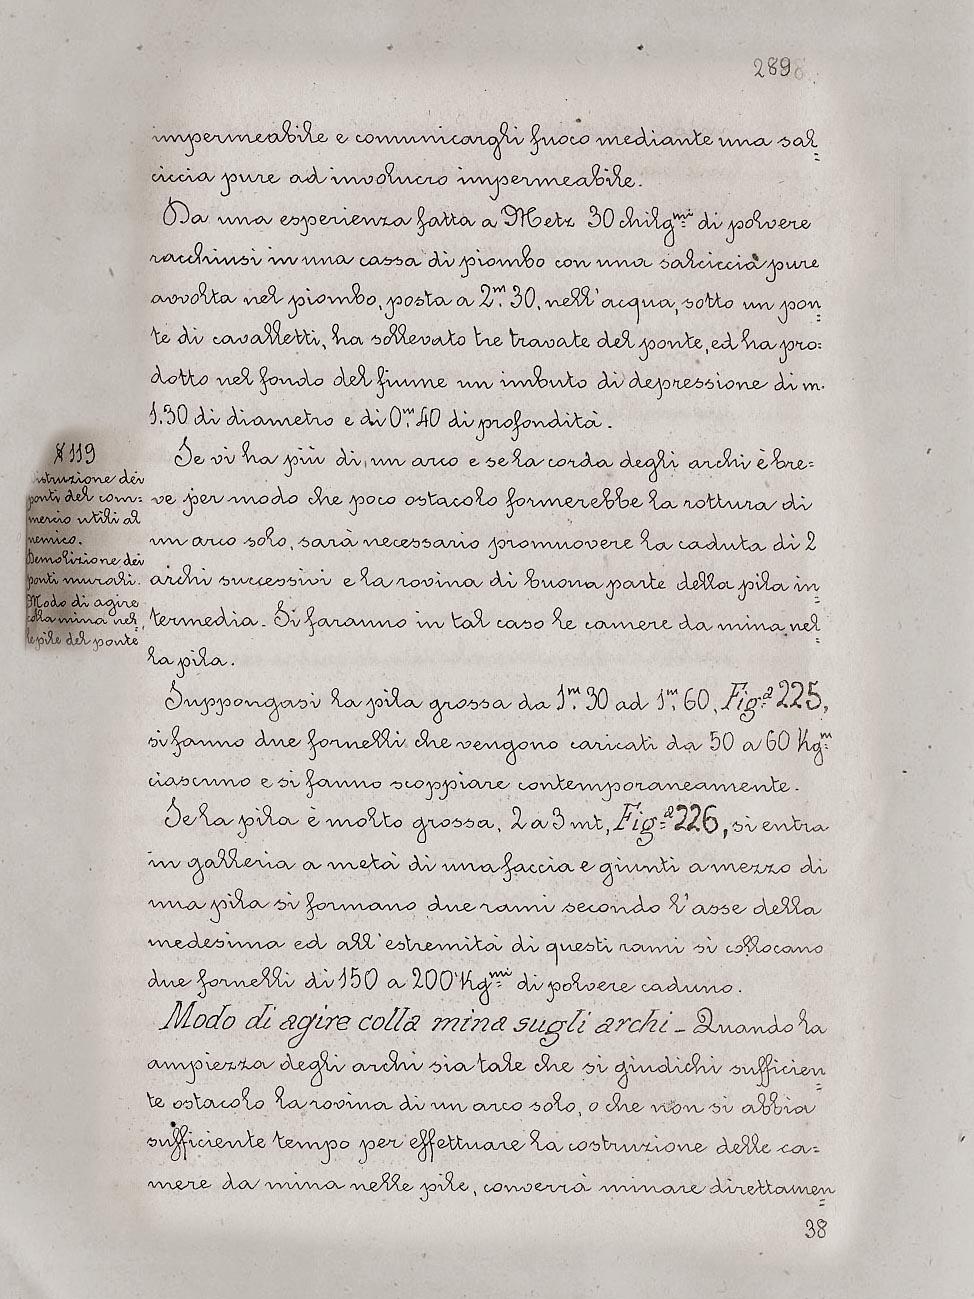 289
impermeabile e comunicarghi fuoco mediante una sal=
ciccia pure ad involucro impermeabile.
Da una esperienza fatta a Metz 30 chilg.mi di polvere
racchiusi in una cassa di piombo con una salciccia pure
avvolta nel piombo, posta a 2.m 30, nell'acqua, sotto un pon=
te di cavalletti, ha sollevato tre travate del ponte, ed ha pro=
dotto nel fondo del fiume un imbuto di depressione di m.
1.30 di diametro e di 0.m 40 di profondità.
§ 119
istruzione dei
ponti del com=
mercio utili al
nemico.
Demolizione dei
ponti murali.
Modo di agire
colla mina nel=
le pile del ponte
Se vi ha più di un arco e se la corda degli archi è bre=
ve per modo che poco ostacolo formerebbe la rottura di
un arco solo, sarà necessario promuovere la caduta di 2
archi successivi e la rovina di buona parte della pila in=
termedia. Si faranno in tal caso le camere da mina nel=
la pila.
Suppongasi la pila grossa da 1.m 30 ad 1.m 60, Fig.a 225,
si fanno due fornelli che vengono caricati da 50 a 60 Kg.m
ciascuno e si fanno scoppiare contemporaneamente.
Se la pila è molto grossa, 2 a 3 mt, Fig.a 226, si entra
in galleria a metà di una faccia e giunti a mezzo di
una pila si formano due rami secondo l'asse della
medesima ed all'estremità di questi rami si collocano
due fornelli di 150 a 200 Kg.mi di polvere caduno.
Modo di agire colla mina sugli archi - Quando la
ampiezza degli archi sia tale che si giudichi sufficien=
te ostacolo la rovina di un arco solo, o che non si abbia
sufficiente tempo per effettuare la costruzione delle ca=
mere da mina nelle pile, converrà minare direttamen=
38